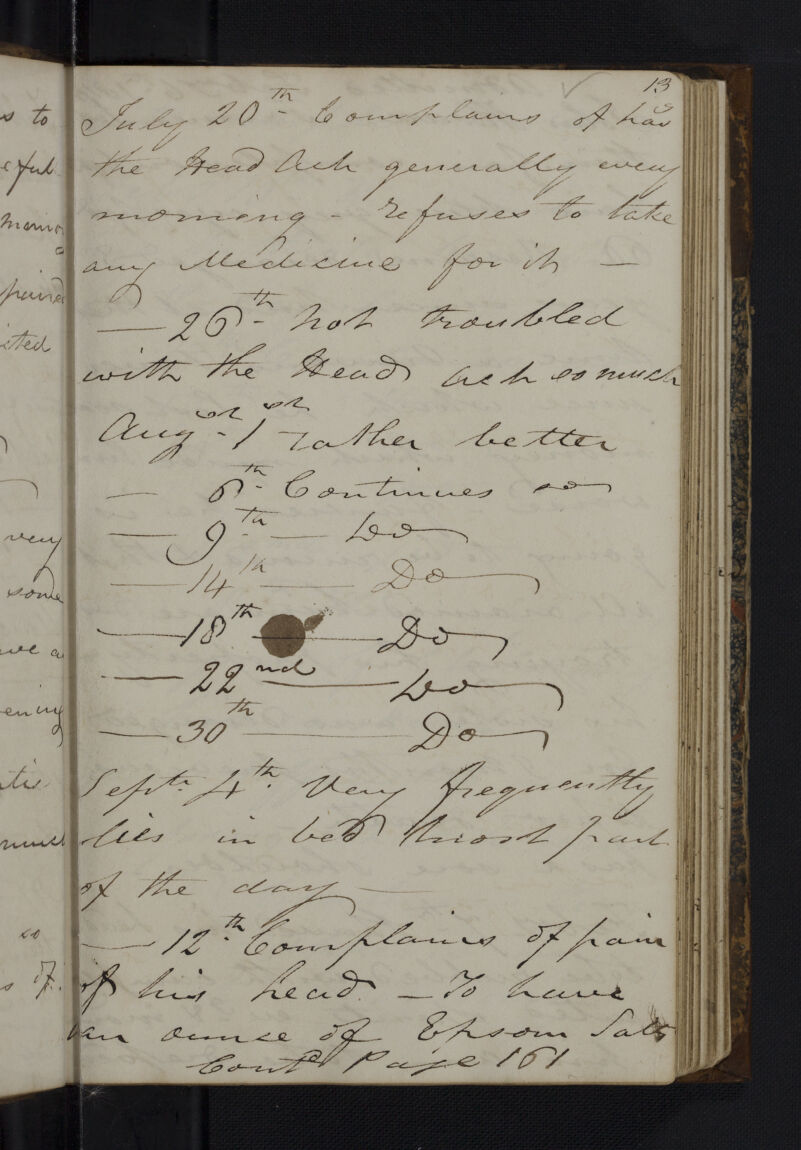 13
July 20th Complains of has
the Head Ach generally every
morning - refuses to take
any Medicine for it —
— 26th not troubled
with the Head ach so much
Augst 1st rather better
— 6th Continues so
— 9th — Do
— 14th — Do
— 18th — Do
— 22nd — Do
— 30th — Do
Septr 4th Very frequently
lies in bed most part
of the day —
— 12th Complains of pain
of his head — To have
an ounce of Epsom Salts
Contd Page 161
s to
ful
very
some
ve a
ening
so
s of